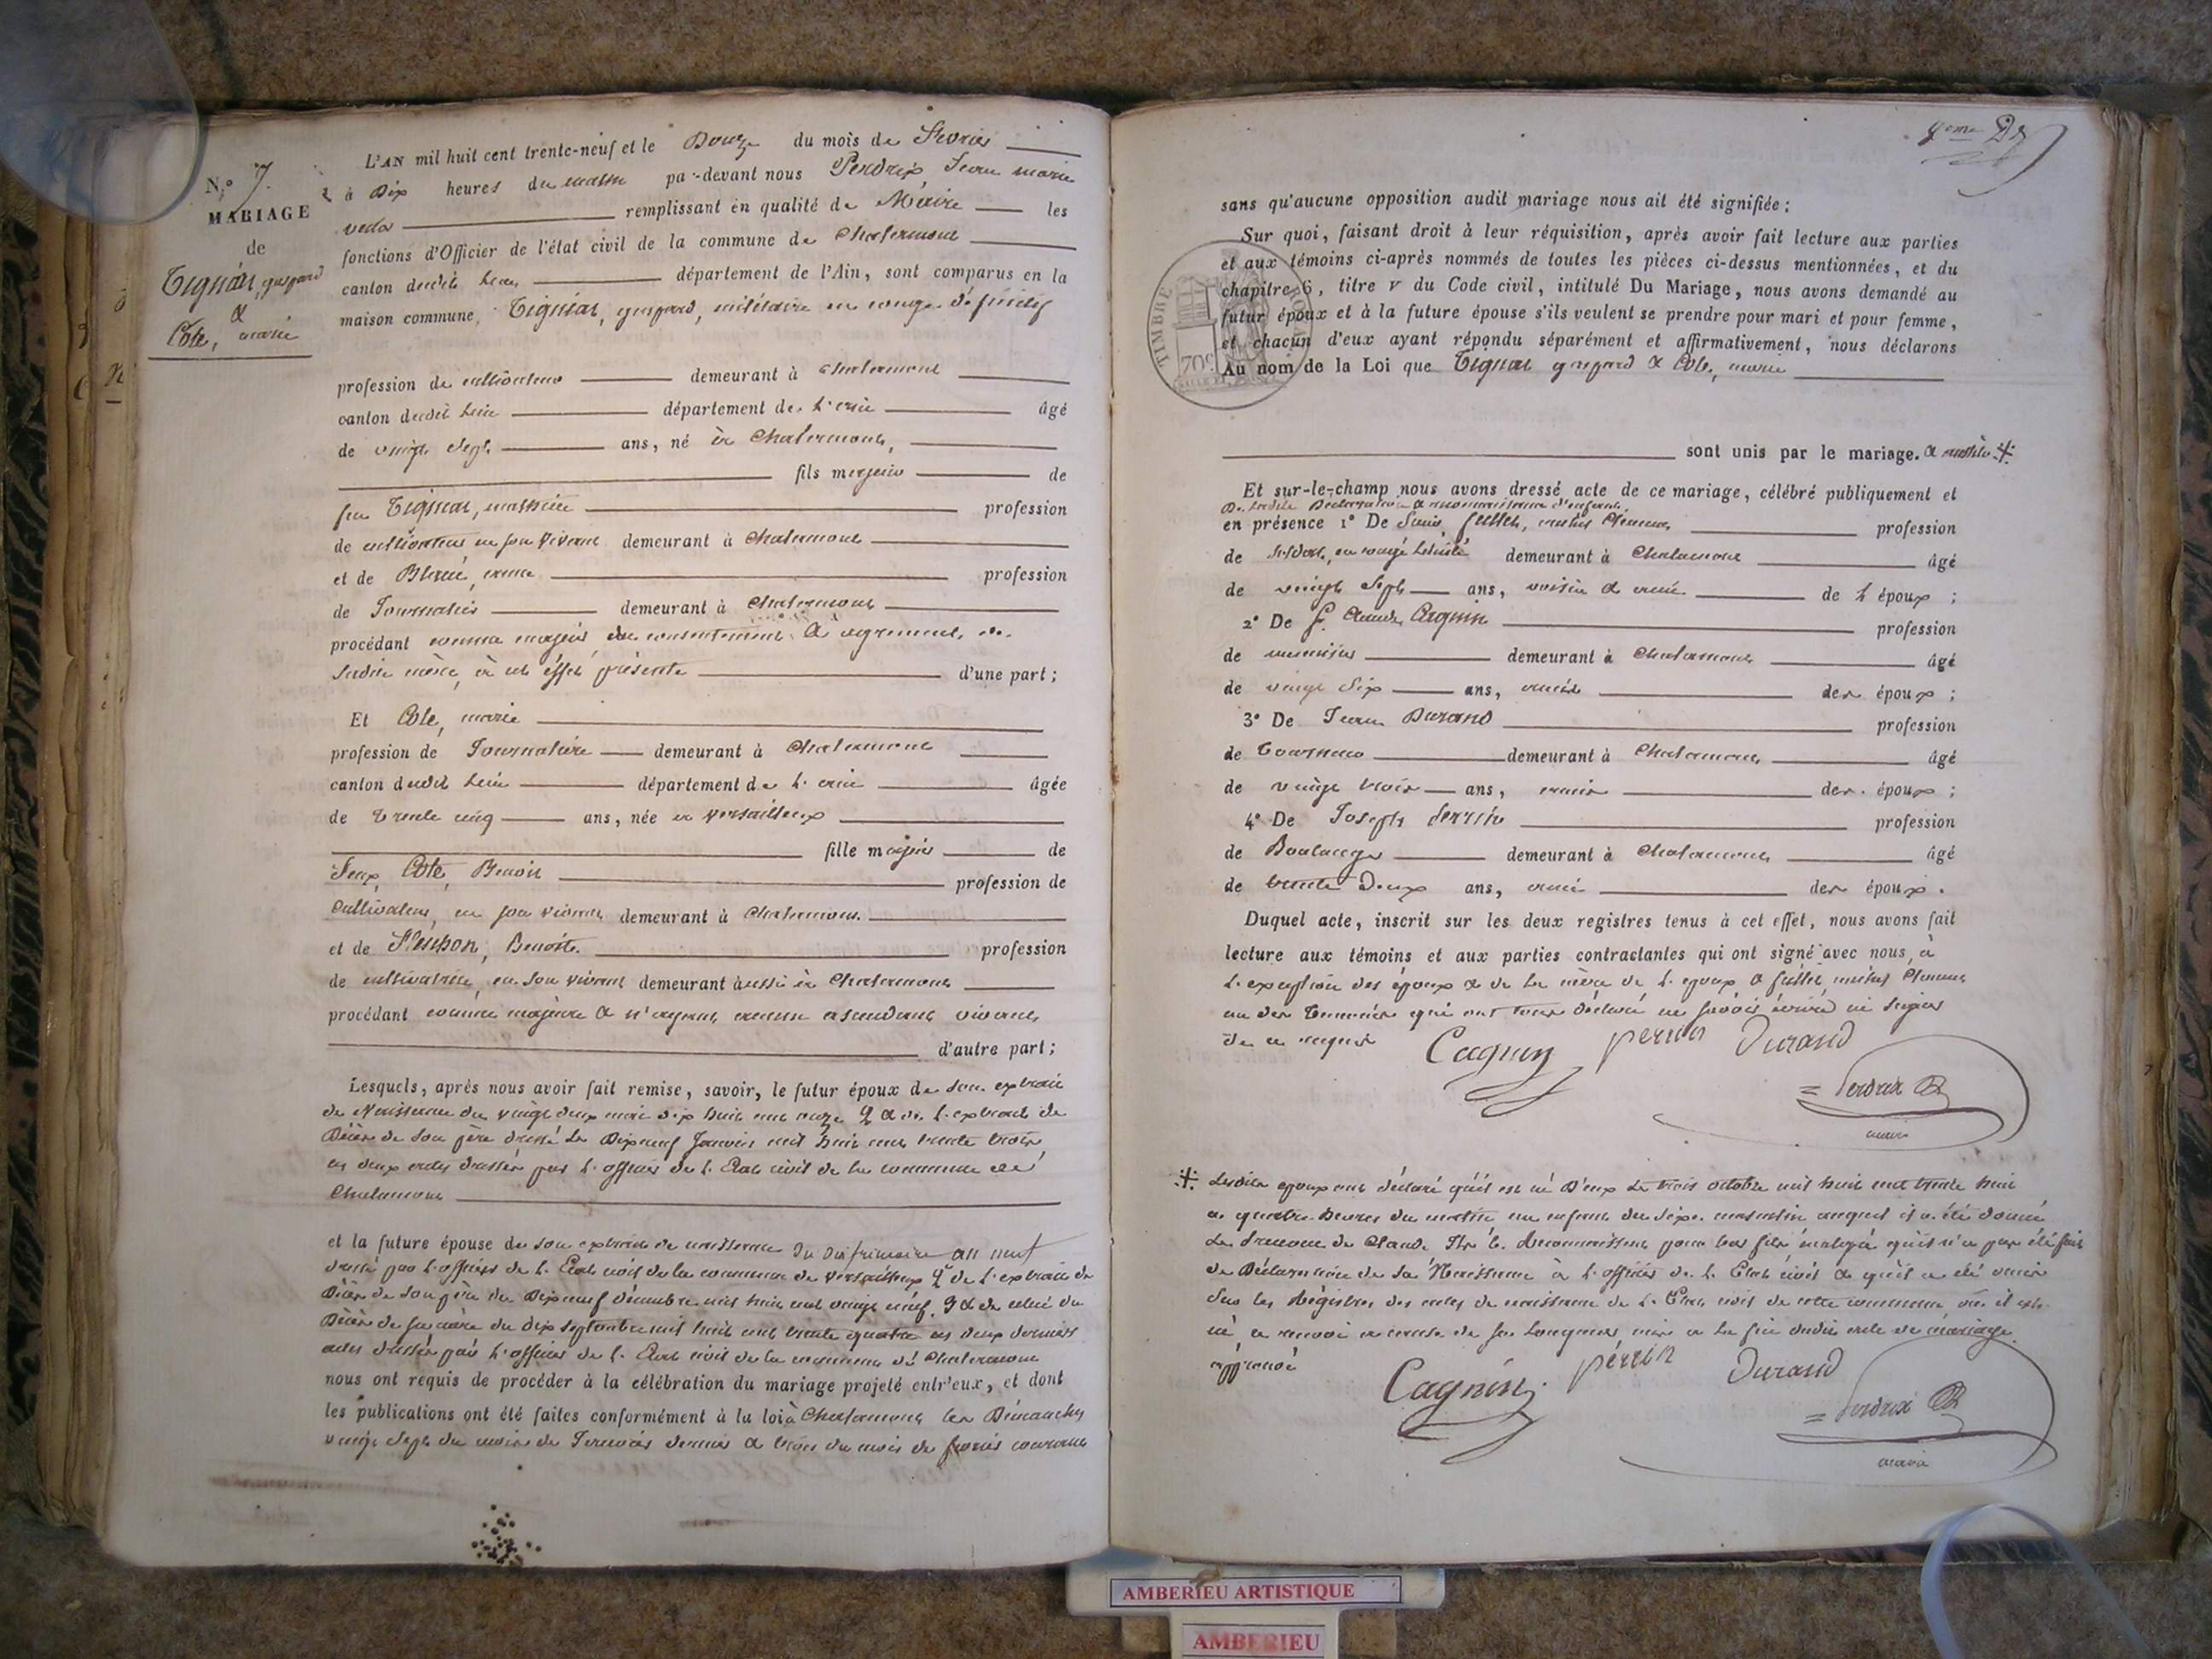 N.° 7.
MARIAGE
de
Tignat, gaspard
&
Cote, marie
L'AN mil huit cent trente-neuf et le Douze du mois de Fevrier
à Dix heures du matin par-devant nous Perdrix Jean marie
remplissant en qualité de Maire les
fonctions d'Officier de l'état civil de la commune de Chalamont
canton dudit lieu département de l'Ain, sont comparus en la
maison commune, Tignat, gaspard, militaire en congé définitif
profession de cultivateur demeurant à Chalamont
canton dudit lieu département de l'ain âgé
de vingt sept ans, né à Chalamont,
fils majeur de
feu Tignat, mathieu profession
de cultivateur en son vivant demeurant à Chalamont
et de profession
de Journalière demeurant à Chalamont
procédant comme majeur du consentement & agrément de
ladite mère, à cet effet présente d'une part;
Et Cote, marie
profession de Journalière demeurant à Chalamont
canton dudit lieu département de l'ain âgée
de trente cinq ans, née à Versailleux
fille majeure de
feux, Cote, Benoit profession de
cultivateur, en son vivant demeurant à Chalamont
et de Benoite profession
de cultivatrice, en son vivant demeurant aussi à Chalamont
procédant comme majeure & n'ayant aucun ascendant vivant
d'autre part;
Lesquels, après nous avoir fait remise, savoir, le futur époux de son extrait
de Naissance du vingt deux mai dix huit cent onze 2 & de l'extrait de
Décès de son père dressé le Dix neuf Janvier mil huit cent trente trois
les deux actes dressés par l'officier de l'Etat civil de la commune de
Chalamont
et la future épouse de son extrait de naissance du dix frimaire an neuf
dressé par l'officier de l'Etat civil de la commune de Versailleux 2° de l'extrait de
Décès de son père du Dix neuf décembre mil huit cent vingt neuf. 3 & de celui du
Décès de sa mère du dix septembre mil huit cent trente quatre les deux derniers
actes dressés par l'officier de l'Etat civil de la commune de Chalamont
nous ont requis de procéder à la célébration du mariage projeté entr'eux, et dont
les publications ont été faites conformément à la loi à Chalamont les Dimanches
vingt sept du mois de Janvier dernier & trois du mois de fevrier courant
sans qu'aucune opposition audit mariage nous ait été signifiée;
Sur quoi, faisant droit à leur réquisition, après avoir fait lecture aux parties
et aux témoins ci-après nommés de toutes les pièces ci-dessus mentionnées, et du
chapitre 6, titre v du Code civil, intitulé Du Mariage, nous avons demandé au
futur époux et à la future épouse s'ils veulent se prendre pour mari et pour femme,
et chacun d'eux ayant répondu séparément et affirmativement, nous déclarons
TIMBRE ROYAL
70c
Au nom de la Loi que Tignat gaspard & Cote, marie
sont unis par le mariage. & aussitôt
Et sur-le-champ nous avons dressé acte de ce mariage, célébré publiquement et
De ladite Declaration & reconnaissance d'enfant
en présence 1° De profession
de soldat, en congé demeurant à Chalamont âgé
de vingt sept ans, voisin & ami de l'époux;
2° De profession
de menuisier demeurant à Chalamont âgé
de vingt six ans, ami des époux;
3° De Jean Durand profession
de Tourneur demeurant à Chalamont âgé
de vingt trois ans, ami des époux;
4° De Joseph Perrin profession
de Boulanger demeurant à Chalamont âgé
de trente Deux ans, ami des époux.
Duquel acte, inscrit sur les deux registres tenus à cet effet, nous avons fait
lecture aux témoins et aux parties contractantes qui ont signé avec nous, à
l'exception des époux & de la mère de l'époux &
un des temoins qui ont tous déclaré ne savoir écrire ni signer
de ce requis
Cagnin perrin Durand
Perdrix
maire
Lesdits epoux ont déclaré qu'il est né D'eux le trois octobre mil huit cent trente huit
à quatre heures du matin un enfant du sexe masculin auquel il a été donné
le prenom de Claude. reconnaissent pour leur fils, malgré qu'il n'a pas été fait
de Déclaration de sa Naissance à l'officier de l'Etat civil & qu'il a été omis
sur les Régistres des actes de naissance de l'Etat civil de cette commune où il est
né, ce renvoi à cause de sa longueur, mis à la fin dudit acte de mariage.
approuvé
Cagnin perrin Durand
Perdrix
maire
AMBERIEU ARTISTIQUE
AMBERIEU